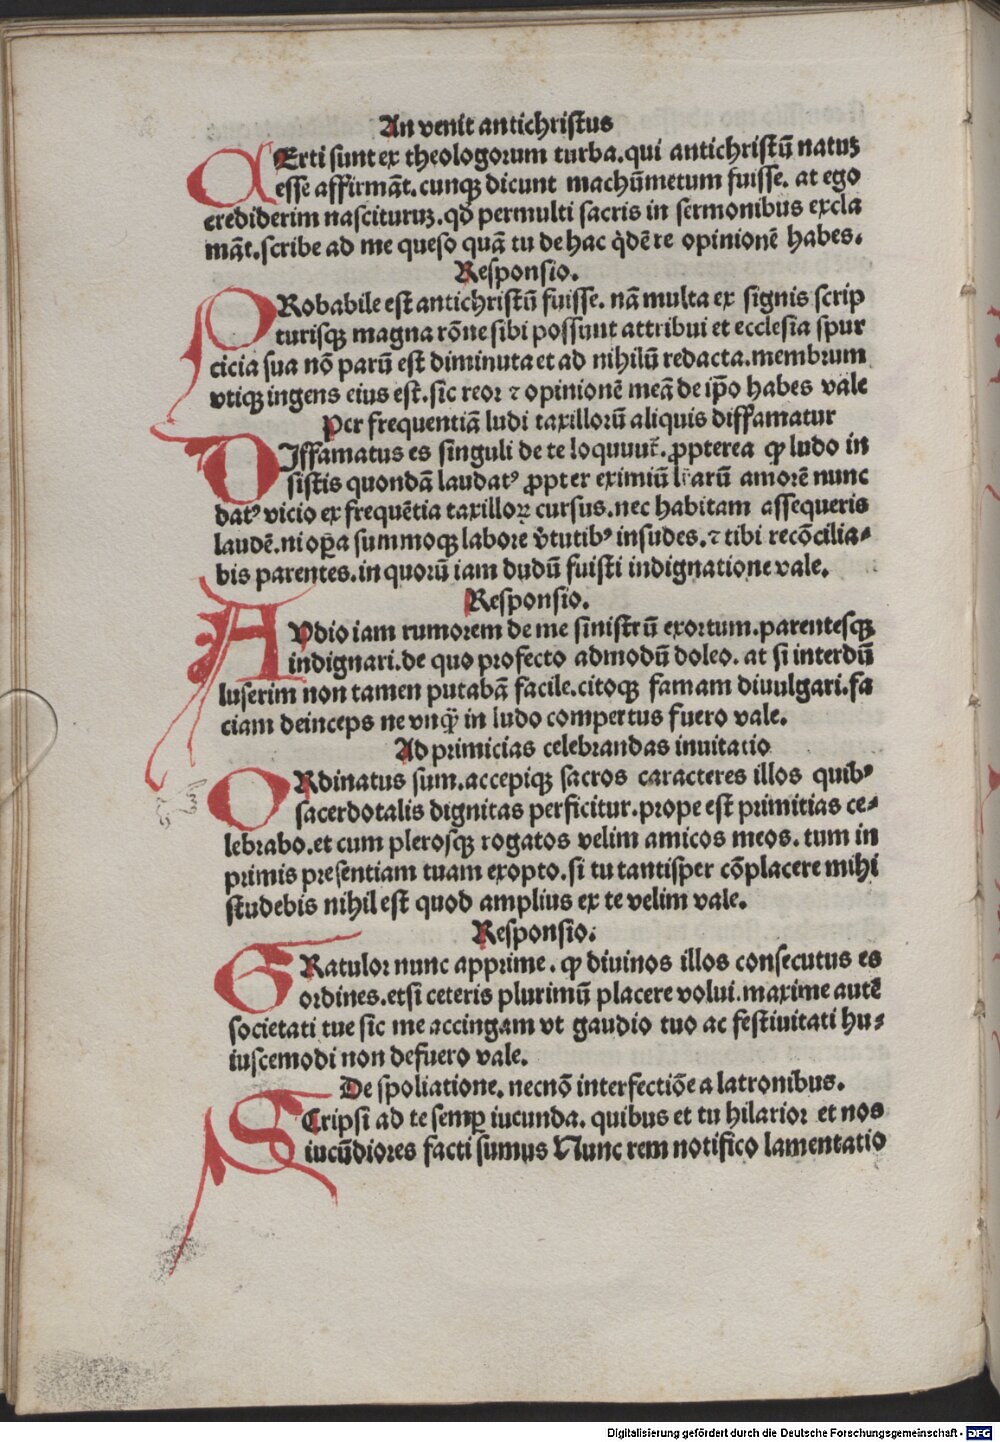 An venit antichristus
CErti sunt ex theologorum turba.qui antichristū natuꝫ
esse affirmāt.cunqꝫ dicunt machūmetum fuisse. at ego
crediderim nascituruꝫ.qđ permulti sacris in sermonibus excla
māt.scribe ad me queso quā tu de hac q̇dē re opinionē habes.
Responsio.
PRobabile est antichristū fuisse. nā multa ex signis scrip
turisqꝫ magna rōne sibi possunt attribui et ecclesia spur
cicia sua nō parū est diminuta et ad nihilū redacta.membrum
vtiqꝫ ingens eius est.sic reor ⁊ opinionē meā de ip̄o habes vale
Per frequentiā ludi taxillorū aliquis diffamatur
DIffamatus es singuli de te loquuut̄.ꝓpterea ꝙ ludo in
sistis quondā laudatꝰ ꝓpter eximiū lr̄arū amorē nunc
datꝰ vicio ex frequētia taxilloꝝ cursus.nec habitam assequeris
laudē.ni oꝑa summoqꝫ labore v̄tutibꝰ insudes.⁊ tibi recōcilia-
bis parentes.in quorū iam dudū fuisti indignatione vale.
Responsio.
AVdio iam rumorem de me sinistrū exortum.parentesqꝫ
indignari.de quo profecto admodū doleo. at si interdū
luserim non tamen putabā facile.citoqꝫ famam diuulgari.fa
ciam deinceps ne vnqꝫ̄ in ludo compertus fuero vale.
Ad primicias celebrandas inuitatio
ORdinatus sum.accepiqꝫ sacros caracteres illos quibꝰ
sacerdotalis dignitas perficitur.prope est primitias ce-
lebrabo.et cum plerosqꝫ rogatos velim amicos meos. tum in
primis presentiam tuam exopto.si tu tantisper cōplacere mihi
studebis nihil est quod amplius ex te velim vale.
Responsio.
GRatulor nunc apprime. ꝙ diuinos illos consecutus es
ordines.etsi ceteris plurimū placere volui.maxime autē
societati tue sic me accingam vt gaudio tuo ac festiuitati hu-
iuscemodi non defuero vale.
De spoliatione. necnō interfectiōe a latronibus.
SCripsi ad te semꝑ iucunda. quibus et tu hilarior et nos
iucūdiores facti sumus Nunc rem notifico lamentatio
Digitalisierung gefördert durch die Deutsche Forschungsgemeinschaft - DFG